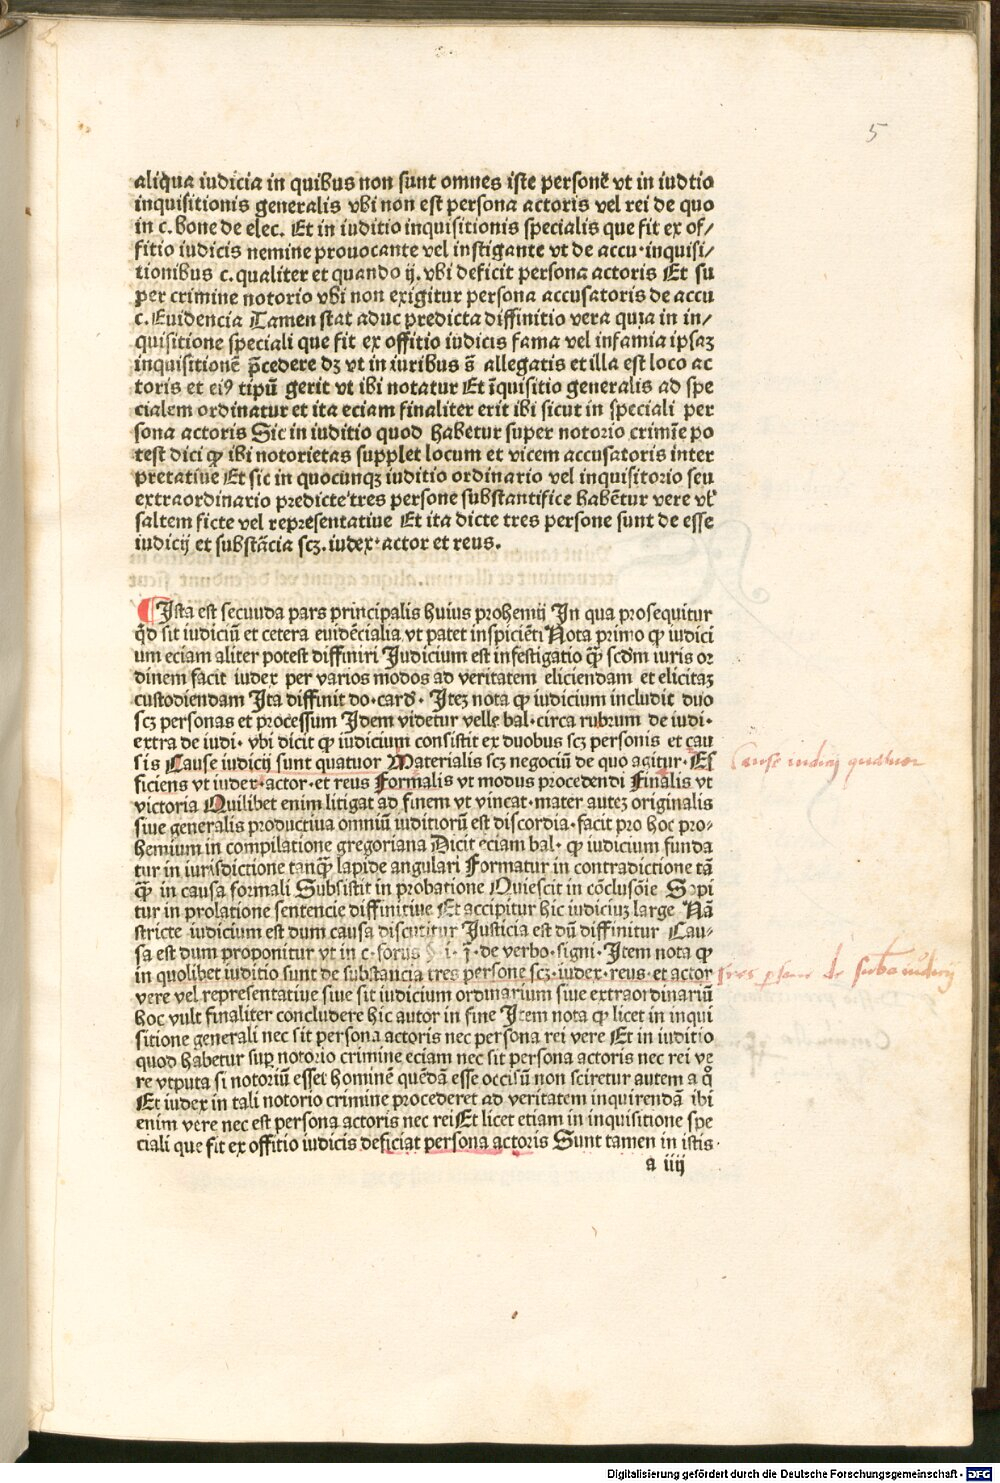 5
aliqua iudicia in quibus non sunt omnes iste persone vt in iudtio
inquisitionis generalis vbi non est persona actoris vel rei de quo
in c. bone de elec. Et in iuditio inquisitionis specialis que fit ex of/
fitio iudicis nemine prouocante vel instigante vt de accu·inquisi/
tionibus c. qualiter et quando ij. vbi deficit persona actoris Et su
per crimine notorio vbi non exigitur persona accusatoris de accu
c. Euidencia Tamen stat aduc predicta diffinitio vera quia in in/
quisitione speciali que fit ex offitio iudicis fama vel infamia ipsaꝫ
inquisitionē p̄cedere dꝫ vt in iuribus s̄ allegatis et illa est loco ac
toris et eiꝰ tipū gerit vt ibi notatur Et īquisitio generalis ad spe
cialem ordinatur et ita eciam finaliter erit ibi sicut in speciali per
sona actoris Sic in iuditio quod habetur super notorio crimīe po
test dici ꝙ ibi notorietas supplet locum et vicem accusatoris inter
pretatiue Et sic in quocunqꝫ iuditio ordinario vel inquisitorio seu
extraordinario predicte tres persone substantifice habētur vere vl̓
saltem ficte vel representatiue Et ita dicte tres persone sunt de esse
iudicij et substācia scꝫ. iudex·actor et reus.
Ista est secuuda pars principalis huius prohemij In qua prosequitur
qd̄ sit iudiciū et cetera euidēcialia vt patet inspiciēti Nota primo ꝙ iudici
um eciam aliter potest diffiniri Judicium est infestigatio q̄ꝫ scdm iuris or
dinem facit iudex per varios modos ad veritatem eliciendam et elicitaꝫ
custodiendam Ita diffinit do·card· Iteꝫ nota ꝙ iudicium includit duo
scꝫ personas et processum Idem videtur velle bal·circa rubrum de iudi·
extra de iudi· vbi dicit ꝙ iudicium consistit ex duobus scꝫ personis et cau
sis Cause iudicij sunt quatuor Materialis scꝫ negociū de quo agitur·Ef
ficiens vt iudex·actor·et reus Formalis vt modus procedendi Finalis vt
victoria Quilibet enim litigat ad finem vt vincat·mater auteꝫ originalis
siue generalis productiua omniū iuditiorū est discordia·facit pro hoc pro/
hemium in compilatione gregoriana Dicit eciam bal· ꝙ iudicium funda
tur in iurisdictione tanq̄ꝫ lapide angulari Formatur in contradictione tā
q̄ꝫ in causa formali Subsistit in probatione Quiescit in cōclusōie Sopi
tur in prolatione sentencie diffinitiue Et accipitur hic iudiciuꝫ large Nā
stricte iudicium est dum causa discutitur Justicia est dū diffinitur Cau/
sa est dum proponitur vt in c·forus § i· ī·de verbo·signi·Item nota ꝙ
in quolibet iuditio sunt de substancia tres persone scꝫ·iudex·reus·et actor
vere vel representatiue siue sit iudicium ordinarium siue extraordinariū
hoc vult finaliter concludere hic autor in fine Item nota ꝙ licet in inqui
sitione generali nec sit persona actoris nec persona rei vere Et in iuditio
quod habetur suꝑ notorio crimine eciam nec sit persona actoris nec rei ve
re vtputa si notoriū esset hominē quēdā esse occisū non sciretur autem a qͦ
Et iudex in tali notorio crimine procederet ad veritatem inquirendā ibi
enim vere nec est persona actoris nec rei Et licet etiam in inquisitione spe
ciali que fit ex offitio iudicis deficiat persona actoris Sunt tamen in istis·
a iiij
Cause iudicij quatuor
tres persone de suba iudicij
Digitalisierung gefördert durch die Deutsche Forschungsgemeinschaft - DFG